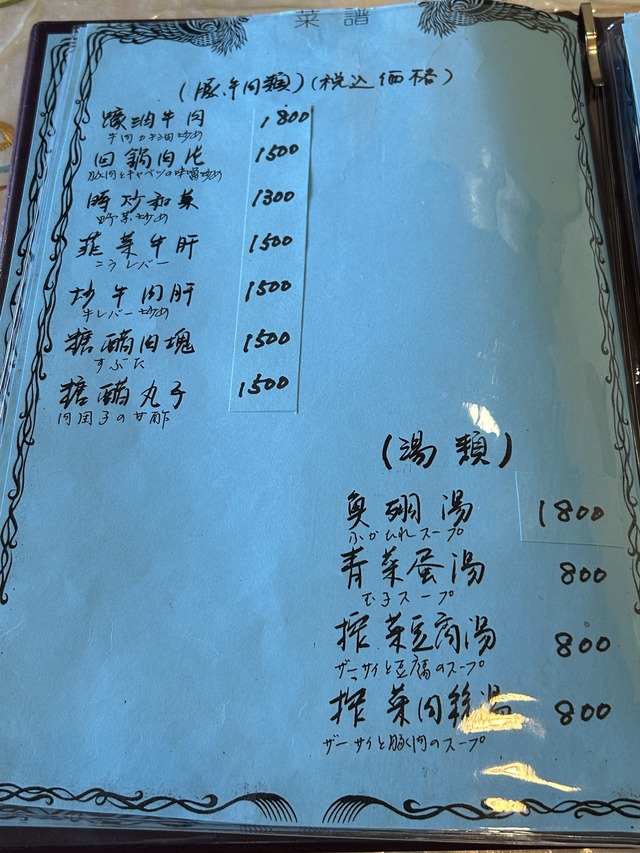 菜譜
(豚、牛肉類)(税込価格)
蠔油牛肉 1800
牛肉カキ油炒め
回鍋肉片 1500
豚肉とキャベツの味噌炒め
時炒和菜 1300
野菜炒め
韮菜牛肝 1500
ニラレバー
炒牛肉肝 1500
牛レバー炒め
糖醋肉塊 1500
すぶた
糖醋丸子 1500
肉団子の甘酢
(湯類)
魚翅湯 1800
ふかひれスープ
青菜蛋湯 800
玉子スープ
搾菜豆腐湯 800
ザーサイと豆腐のスープ
搾菜肉絲湯 800
ザーサイと豚肉のスープ